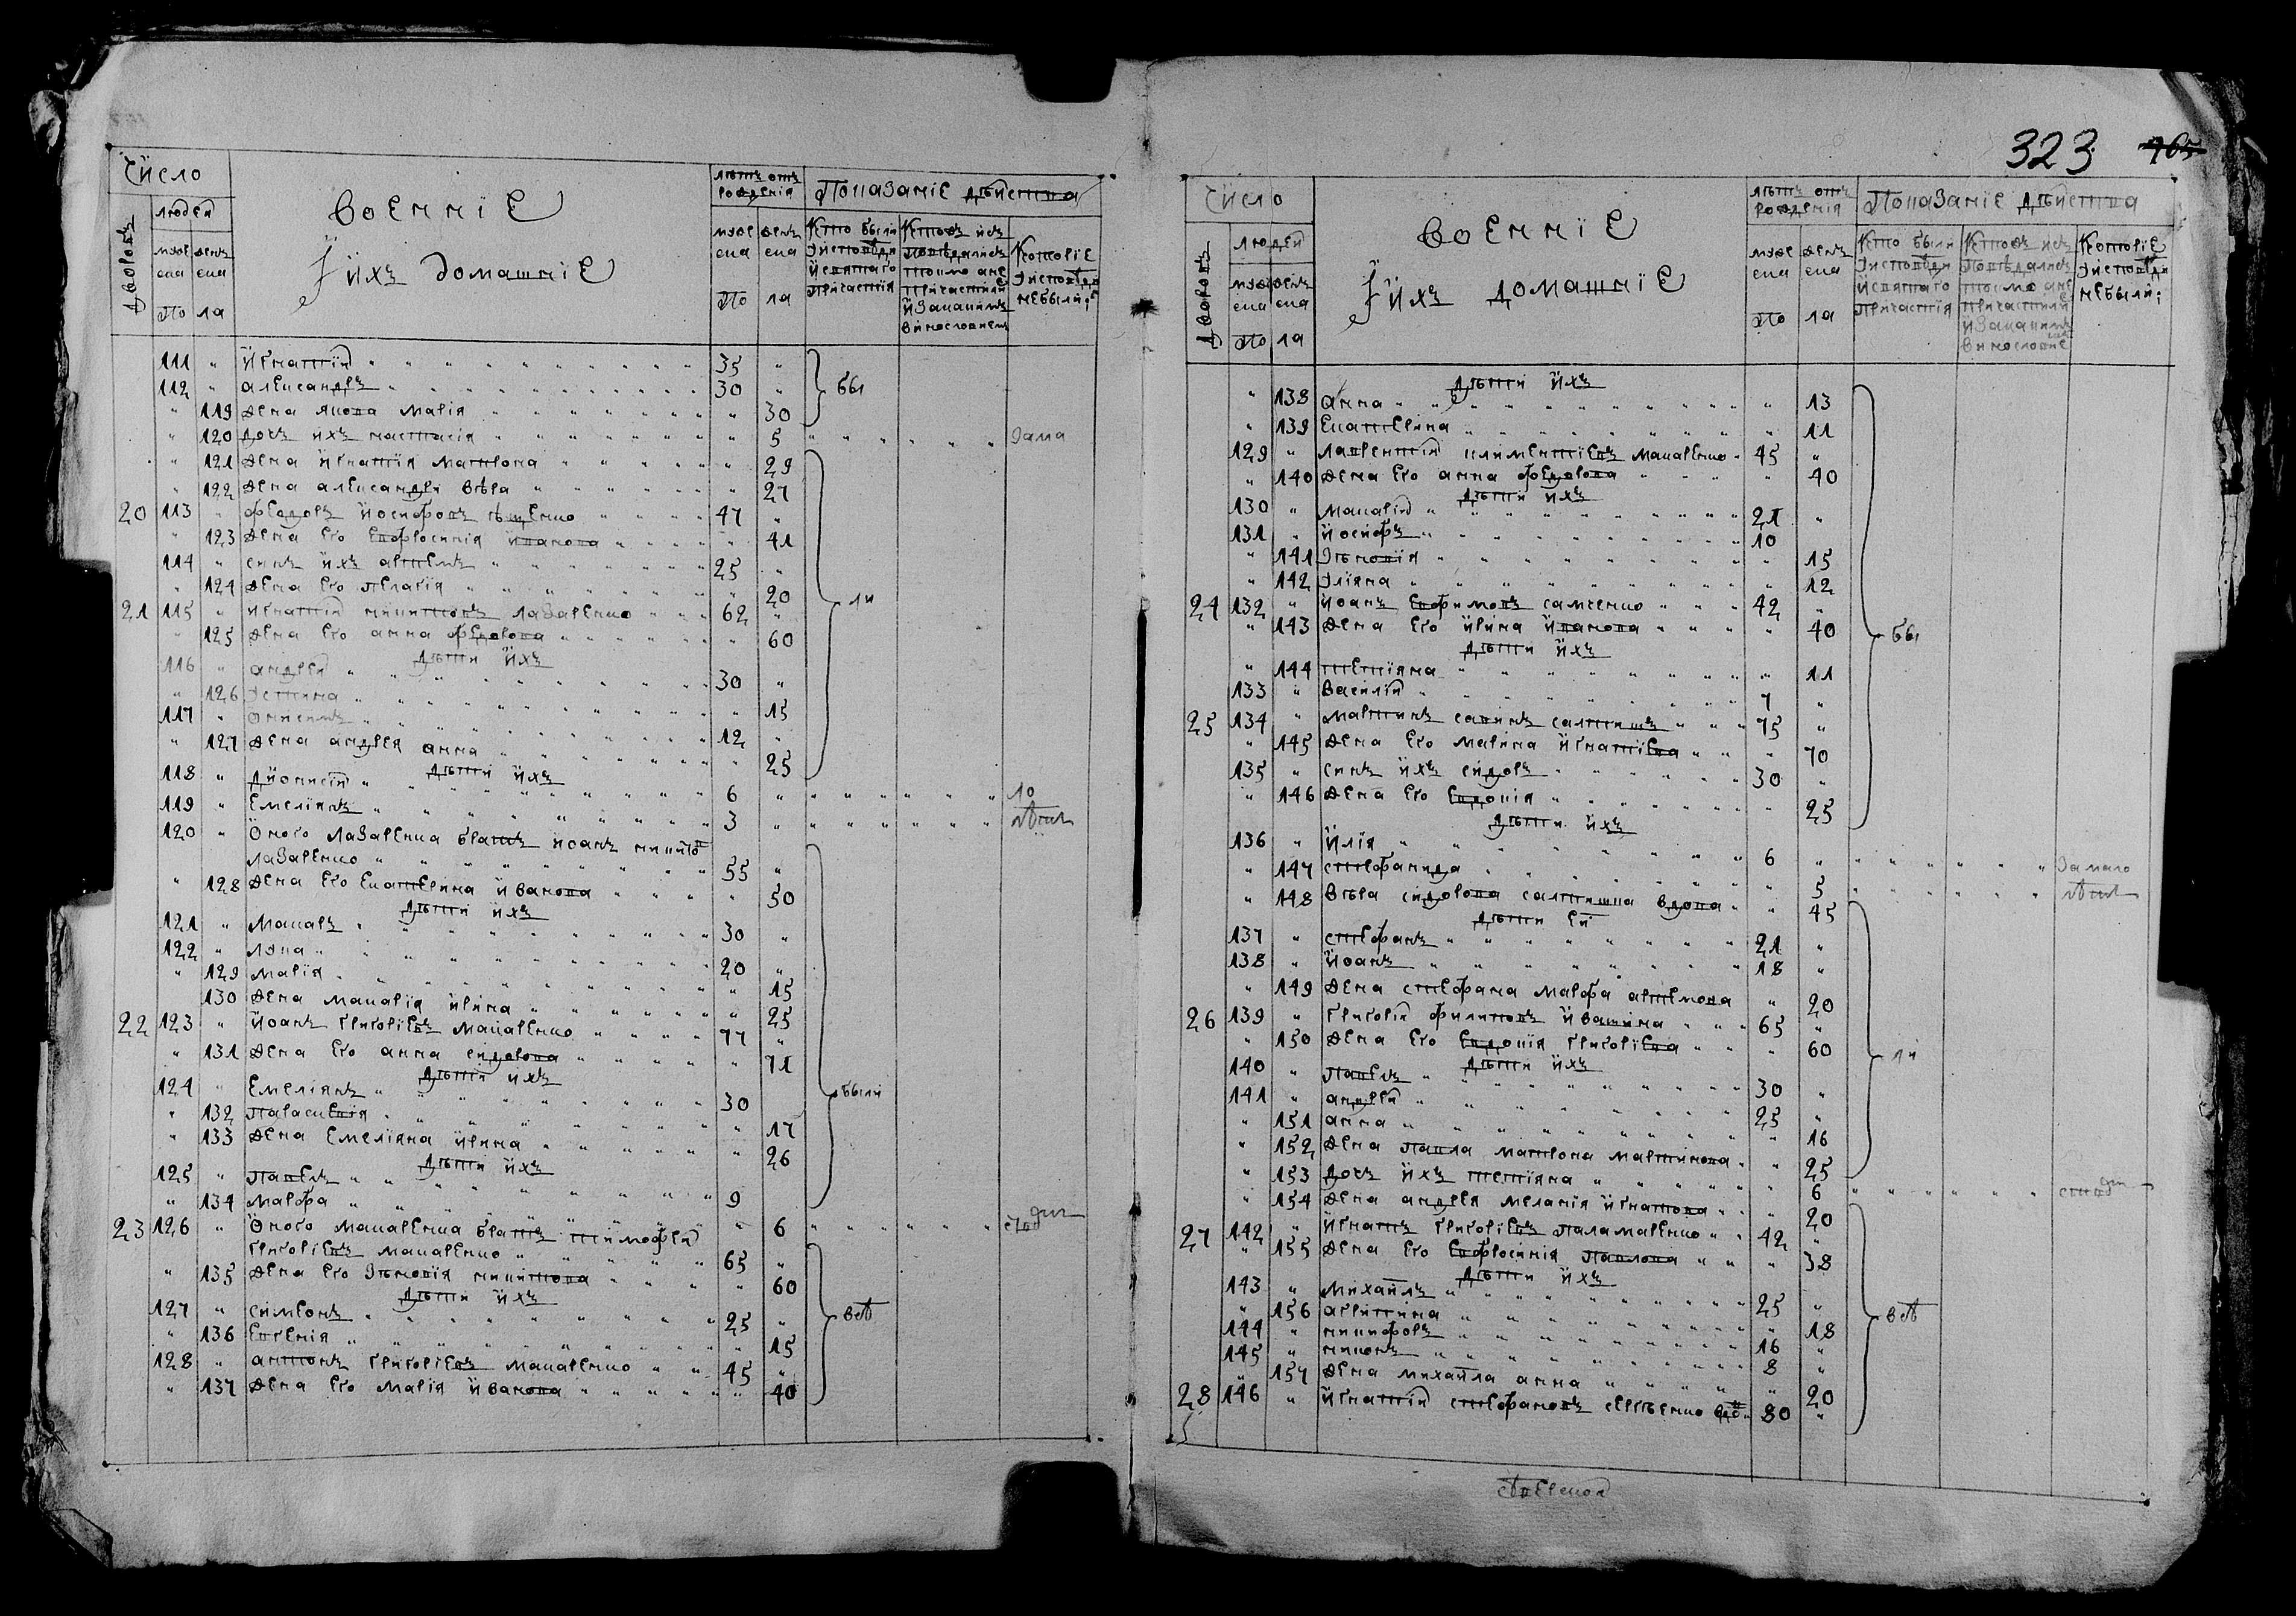 323 765
Число
людей
Дворовъ
муже ска женъ ска
по ла
Военніе
И ихъ домашніе
лѣтъ отъ рожденія
муже ска женъ ска
по ла
Показаніе дѣйства
Кто были у исповѣди и святаго причастія
Кто же исповѣдались токмо а не причастили и за какимъ винословіемъ
Которіе у исповѣди не были;
111 " Игнатій 35 "
112 " Александръ 30 " бы
" 119 жена якова Марія " 30
" 120 дочъ ихъ настасія " 5 зама
" 121 жена игнатія матрона " 29
" 122 жена александра вѣра " 27
20 113 " Федоръ иосифовъ 47 "
" 123 жена его евфросинія иванова " 41
114 " синъ ихъ артемъ 25 "
" 124 жена его пелагія " 20
21 115 " игнатій никитовъ лазаренко 62 " ли
" 125 жена его анна федорова " 60
дѣти ихъ
116 " андрей 30 "
" 126 устина " 15
117 " Онисимъ 12 "
" 127 жена андрея анна " 25
дѣти ихъ
118 " дионисій 6 " ло
119 " Емеліянъ 3 " лѣтст
120 " Оного лазаренка братъ иоанъ никито
лазаренко 55 "
" 128 жена его екатерина иванова " 50
дѣти ихъ
121 " Макаръ 30 "
122 " лука 20 "
" 129 марія " 15
130 жена макарія ирина " 25
22 123 " иоанъ григоріевъ макаренко 77 "
" 131 жена его анна сидорова " 71
дѣти ихъ
124 " Емеліянъ 30 были
" 132 параскевія " 17
" 133 жена Емеліяна ирина " 26
дѣти ихъ
125 " павелъ 9
" 134 марфа " 6
23 126 " Оного макаренка братъ тимофей
григоріевъ макаренко 65 "
" 135 жена его зѣновія никитова " 60
дѣти ихъ
127 " симеонъ 25 " всѣ
" 136 Евгенія " 15
128 " антонъ григоріевъ макаренко 45 "
" 137 жена его марія иванова " 40
Число
людей
Дворовъ
муже ска женъ ска
по ла
Военніе
И ихъ домашніе
лѣтъ отъ рожденія
муже ска женъ ска
по ла
Показаніе дѣйства
Кто были у исповѣди и святаго причастія
Кто же исповѣдались токмо а не причастили и за какимъ винословіе
Которіе у исповѣди не были;
дѣти ихъ
" 138 анна " 13
" 139 Екатерина " 11
129 " лаврентій климентіевъ макаренко 45 "
" 140 жена его анна федорова " 40
дѣти ихъ
130 " макарій 21 "
131 " иосифъ 10
" 141 зѣновія " 15
" 142 уліяна " 12
24 132 " иоанъ евфимовъ самченко 42 "
" 143 жена его ирина иванова " 40 бы
дѣти ихъ
" 144 тетіяна " 11
133 " василій 7 "
25 134 " мартинъ савинъ салтишъ 75 "
" 145 жена его марина игнатіева " 70
135 " синъ ихъ сидоръ 30 "
" 146 жена его евдокія " 25
дѣти ихъ
136 " илія 6 " замало
" 147 стефанида " 5 лѣтст
" 148 вѣра сидорова салтишка вдова " 45
дѣти ей
137 " стефанъ 21 "
138 " иоанъ 18 "
" 149 жена стефана марфа артемова " 20
26 139 " григорій филиповъ ивашина 65 "
" 150 жена его евдокія григоріева " 60 ли
дѣти ихъ
140 " павелъ 30 "
141 " андрей 25 "
" 151 анна " 16
" 152 жена павла матрона мартинова " 25
" 153 дочъ ихъ тетіяна " 6
" 154 жена андрея меланія игнатова " 20
27 142 " игнатъ григоріевъ паламаренко 42 "
" 155 жена его евфросинія павлова " 38
дѣти ихъ
143 " михаилъ 25 "
" 156 агрипина " 18 всѣ
144 " никифоръ 16 "
145 " никонъ 8 "
" 157 жена михаила анна " 20
28 146 " игнатій стефановъ сергѣенко вдо 80 "